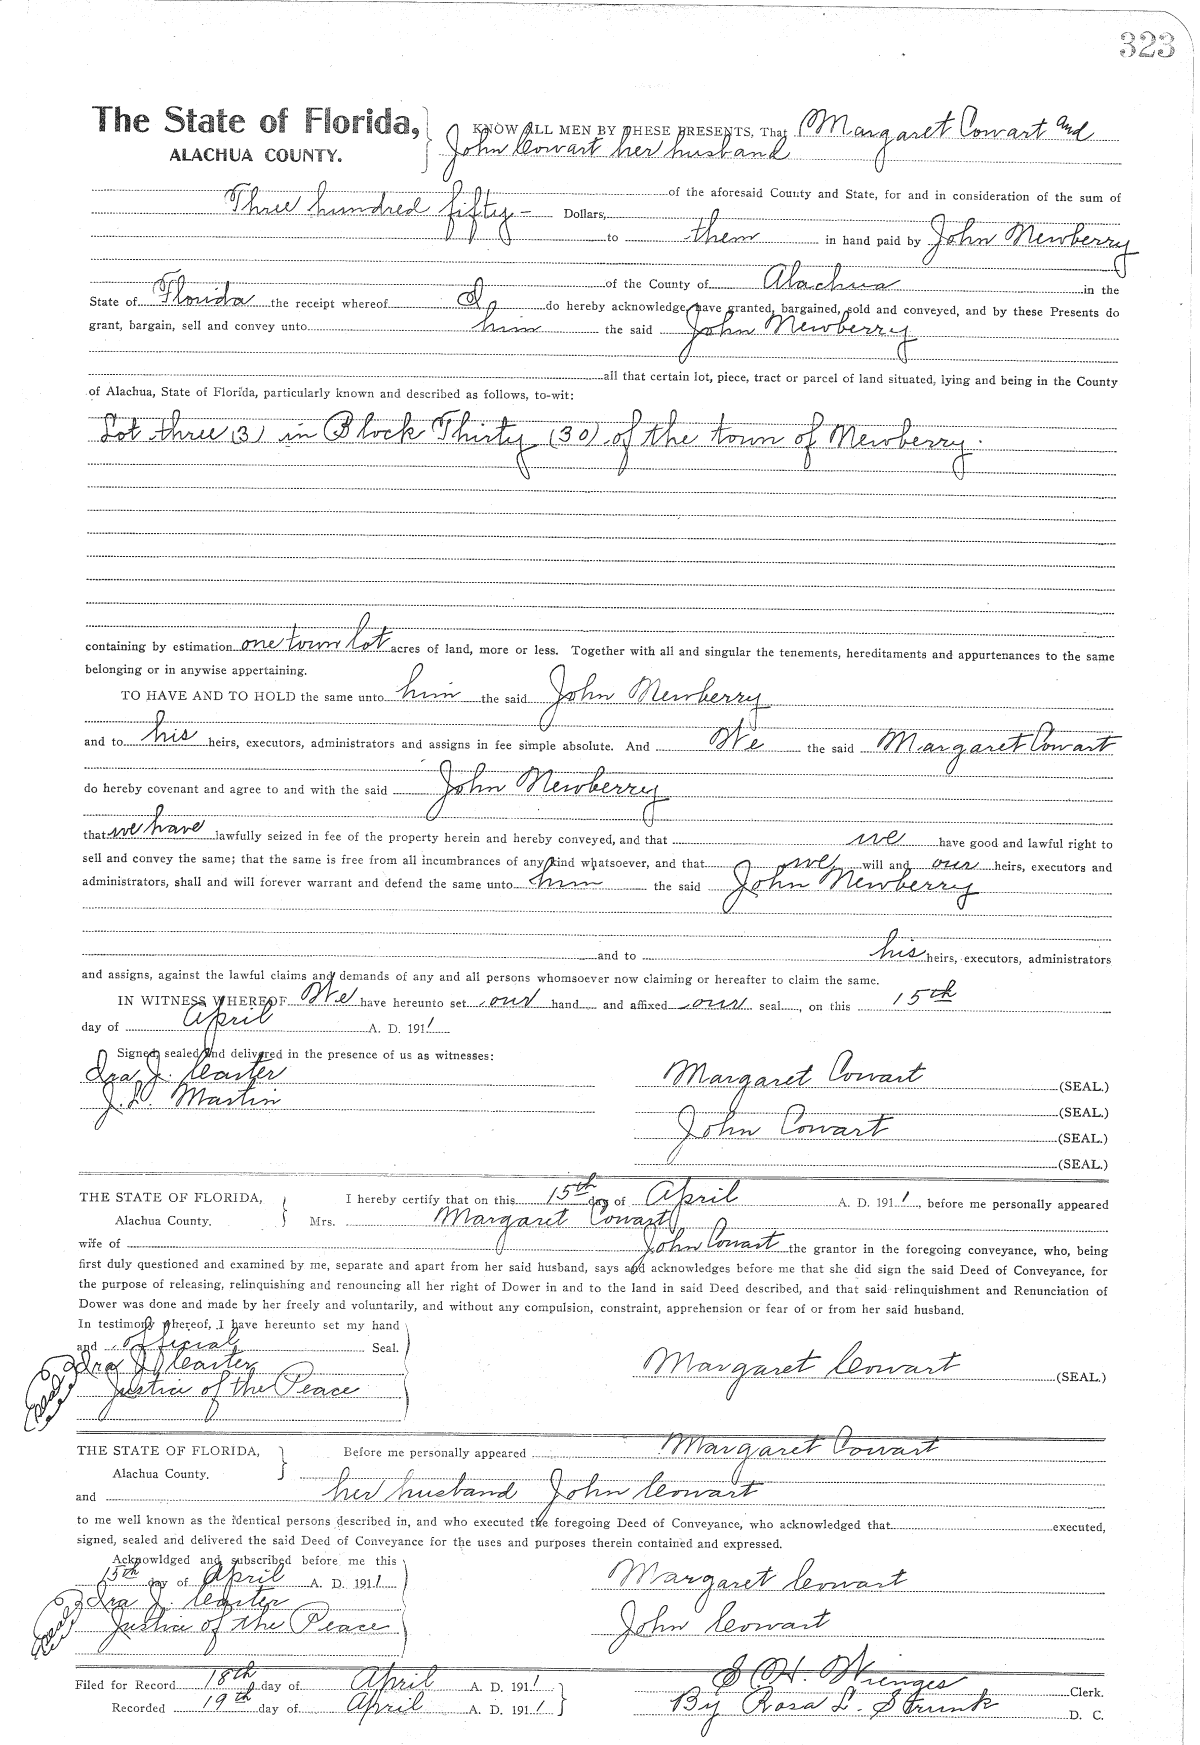 323
The State of Florida, KNOW ALL MEN BY THESE PRESENTS, That Margaret Cowart and
ALACHUA COUNTY. John Cowart her husband
of the aforesaid County and State, for and in consideration of the sum of
Three hundred fifty - Dollars,
to them in hand paid by John Newberry
of the County of Alachua in the
State of Florida the receipt whereof I do hereby acknowledge, have granted, bargained, sold and conveyed, and by these Presents do
grant, bargain, sell and convey unto him the said John Newberry
all that certain lot, piece, tract or parcel of land situated, lying and being in the County
of Alachua, State of Florida, particularly known and described as follows, to-wit:
Lot three (3) in Block Thirty (30) of the town of Newberry.
containing by estimation one town lot acres of land, more or less. Together with all and singular the tenements, hereditaments and appurtenances to the same
belonging or in anywise appertaining.
TO HAVE AND TO HOLD the same unto him the said John Newberry
and to his heirs, executors, administrators and assigns in fee simple absolute. And We the said Margaret Cowart
do hereby covenant and agree to and with the said John Newberry
that we have lawfully seized in fee of the property herein and hereby conveyed, and that we have good and lawful right to
sell and convey the same; that the same is free from all incumbrances of any kind whatsoever, and that we will and our heirs, executors and
administrators, shall and will forever warrant and defend the same unto him the said John Newberry
and to his heirs, executors, administrators
and assigns, against the lawful claims and demands of any and all persons whomsoever now claiming or hereafter to claim the same.
IN WITNESS WHEREOF We have hereunto set our hand and affixed our seal, on this 15th
day of April A. D. 1911
Signed, sealed and delivered in the presence of us as witnesses:
Ira J. Carter Margaret Cowart (SEAL.)
J. L. Martin (SEAL.)
John Cowart (SEAL.)
(SEAL.)
THE STATE OF FLORIDA, I hereby certify that on this 15th day of April A. D. 1911, before me personally appeared
Alachua County. Mrs. Margaret Cowart
wife of John Cowart the grantor in the foregoing conveyance, who, being
first duly questioned and examined by me, separate and apart from her said husband, says and acknowledges before me that she did sign the said Deed of Conveyance, for
the purpose of releasing, relinquishing and renouncing all her right of Dower in and to the land in said Deed described, and that said relinquishment and Renunciation of
Dower was done and made by her freely and voluntarily, and without any compulsion, constraint, apprehension or fear of or from her said husband.
In testimony whereof, I have hereunto set my hand
and official Seal.
Ira J. Carter Margaret Cowart (SEAL.)
Seal Justice of the Peace
THE STATE OF FLORIDA, Before me personally appeared Margaret Cowart
Alachua County.
and her husband John Cowart
to me well known as the identical persons described in, and who executed the foregoing Deed of Conveyance, who acknowledged that executed,
signed, sealed and delivered the said Deed of Conveyance for the uses and purposes therein contained and expressed.
Acknowldged and subscribed before me this
15th day of April A. D. 1911 Margaret Cowart
Ira J. Carter
Seal Justice of the Peace John Cowart
Filed for Record 18th day of April A. D. 1911 S. H. Wienges Clerk.
Recorded 19th day of April A. D. 1911 By Rosa L. Strunk D. C.